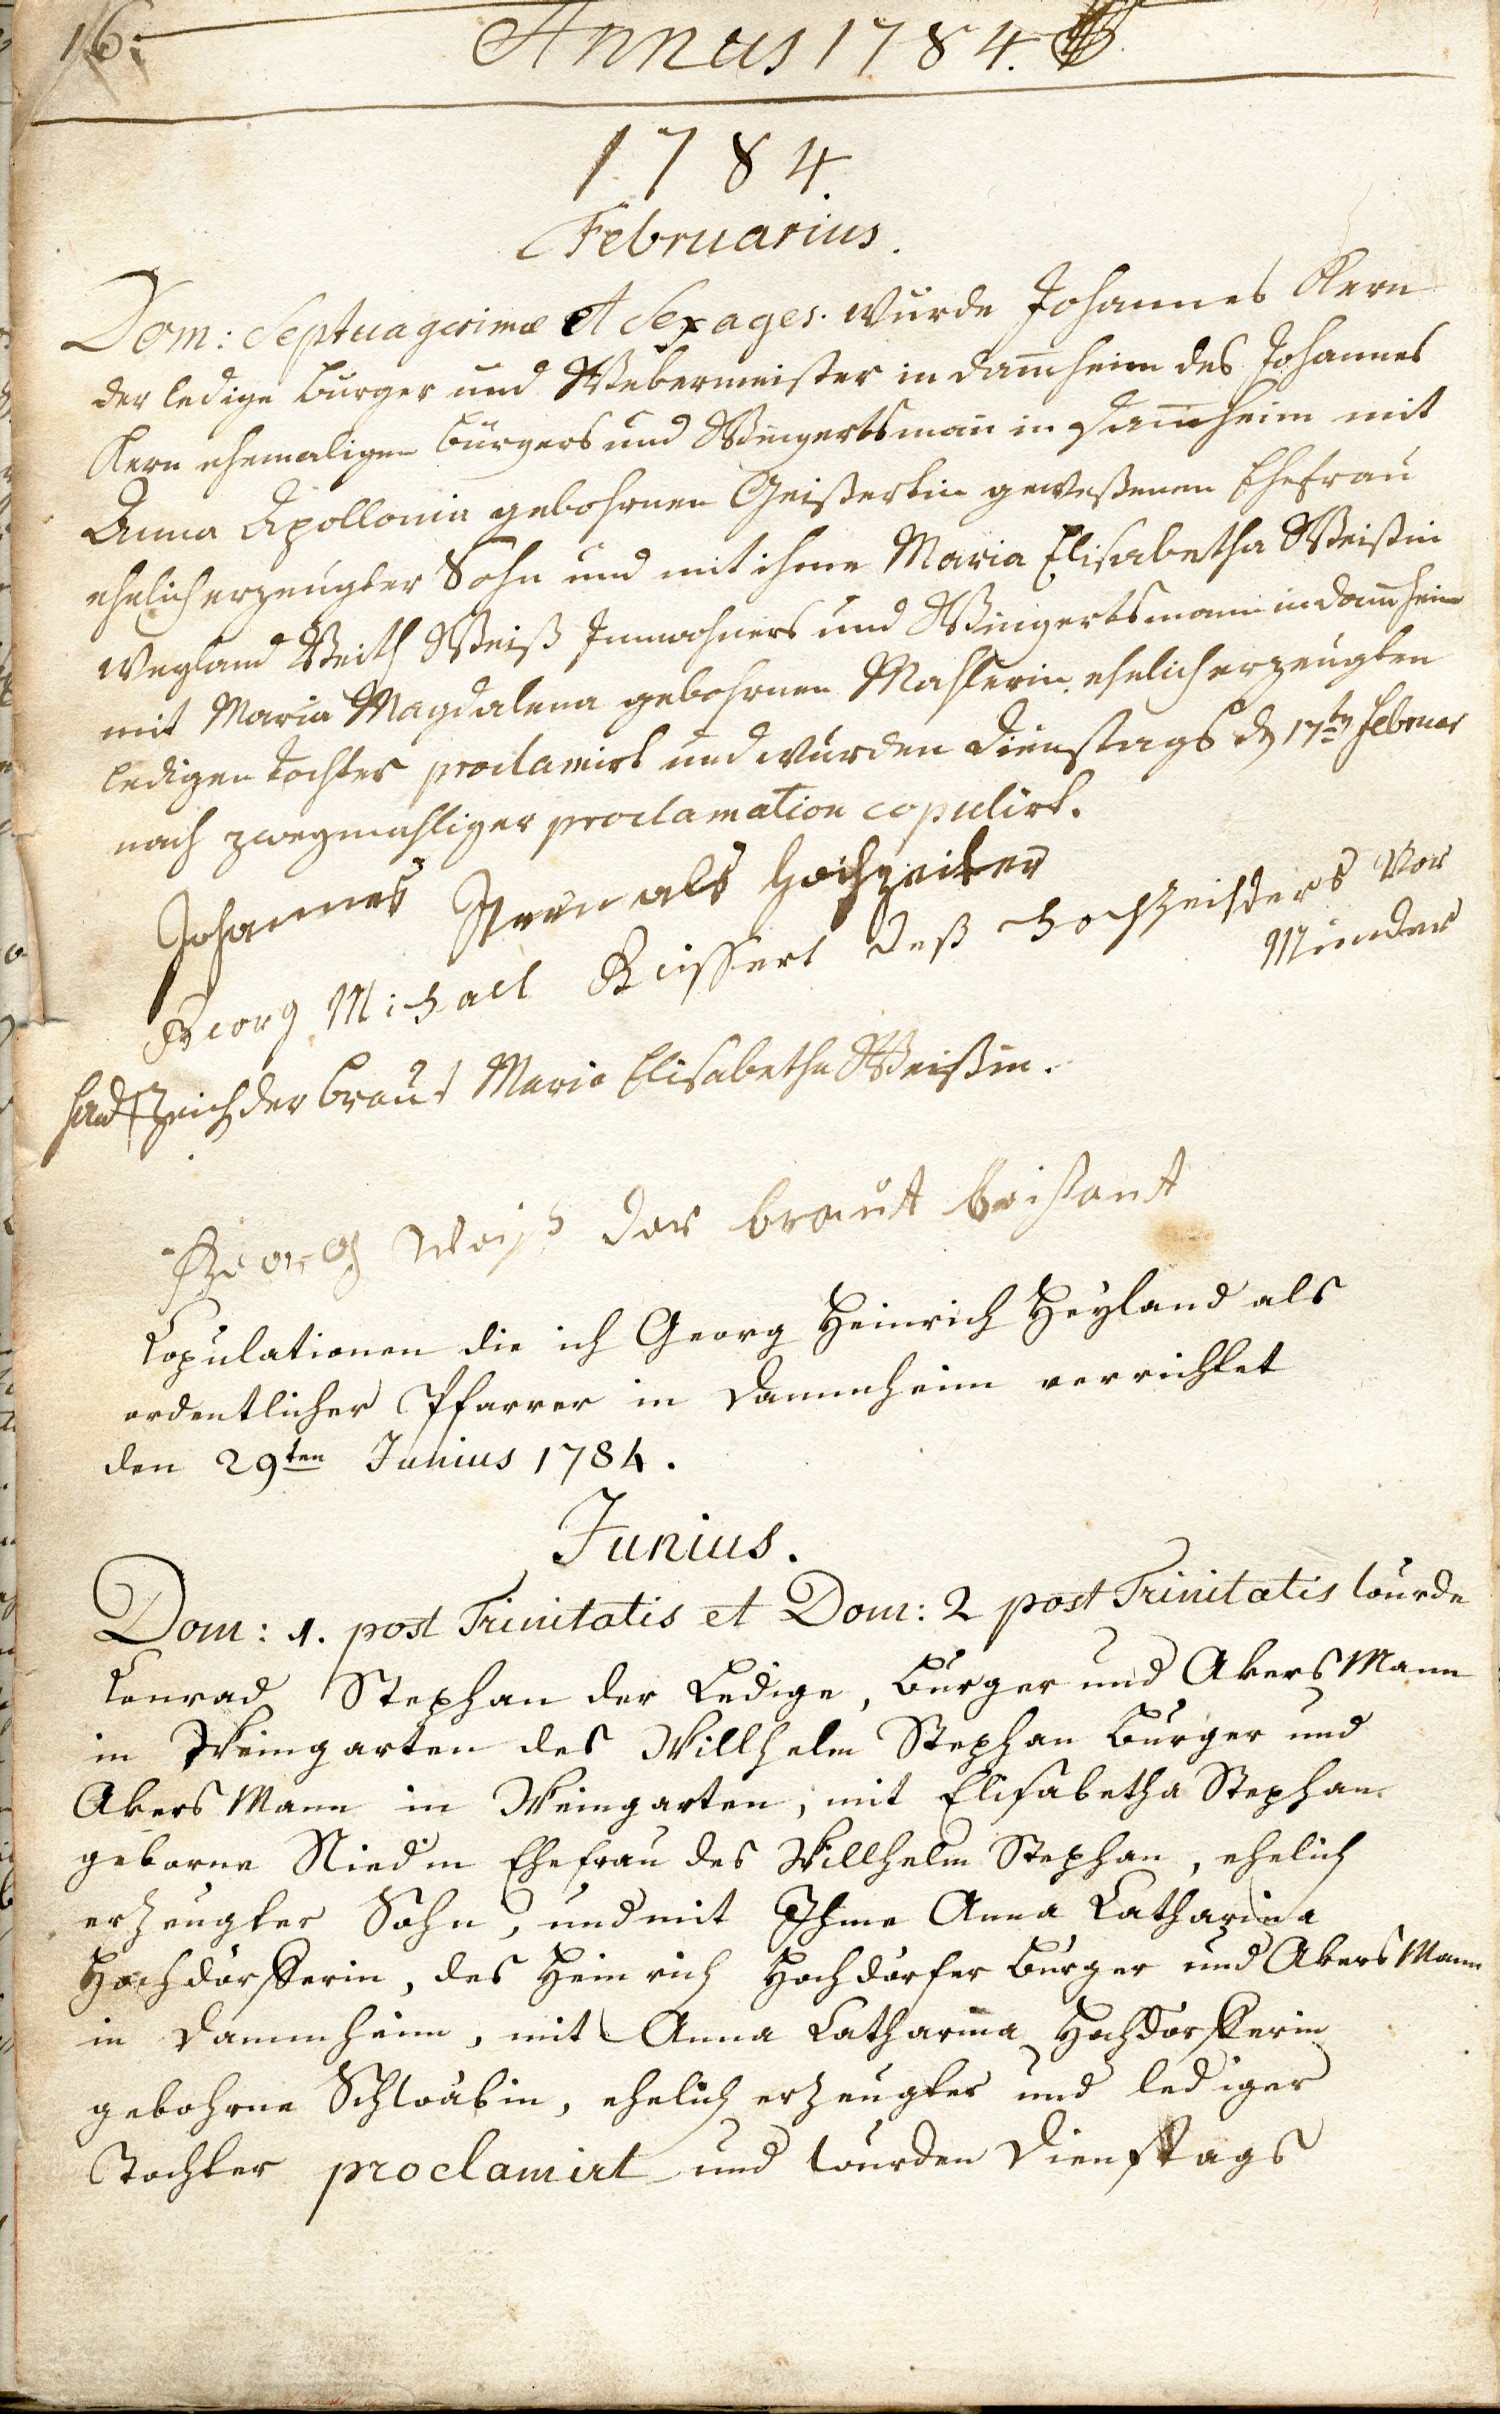 16.
Annus 1784.
1784.
Februarius.
Dom: Septuagesimæ et Sexages. wurde Johannes Kern
der ledige Burger und Webermeister in Dam̄heim des Johannes
Kern ehemaligen Bürgers und Wingertsman̄ in Dam̄heim mit
Anna Apollonia gebohrnen Geißertin geweßenen Ehefrau
ehelich erzeugter Sohn und mit ihme Maria Elisabetha Weißin
weyland Veith Weiß Innwohners und Wingertsmann in Dam̄heim
mit Maria Magdalena gebohrnen Mahlerin ehelich erzeugten
ledigen Tochter proclamirt und wurden Dienstags d 17ten Februar
nach zweymahliger proclamation copulirt.
Johannes Kern als Hochzeiter
Georg Michael Geissert deß Hochzeiters Vor
Münder
Hand + Zeich der Braut Maria Elisabetha Weißin.
Georg Weiß der braut beistant
Copulationen die ich Georg Heinrich Heyland als
ordentlicher Pfarrer in Dammheim verrichtet
den 29ten Junius 1784.
Junius.
Dom: 1. post Trinitatis et Dom: 2 post Trinitatis wurde
Conrad Stephan der Ledige, Burger und AkersMann
in Weingarten des Willhelm Stephan Burger und
AkersMann in Weingarten, mit Elisabetha Stephan
geborne Niedin Ehefrau des Willhelm Stephan, ehelich
erzeugter Sohn, und mit Ihme Anna Catharina
Hochdörfferin, des Heinrich Hochdörfer Burger und AkersMann
in Dammheim, mit Anna Catharina Hochdörfferin
gebohrne Schwäbin, ehelich erzeugter und lediger
Tochter proclamirt und wurden Dienstags